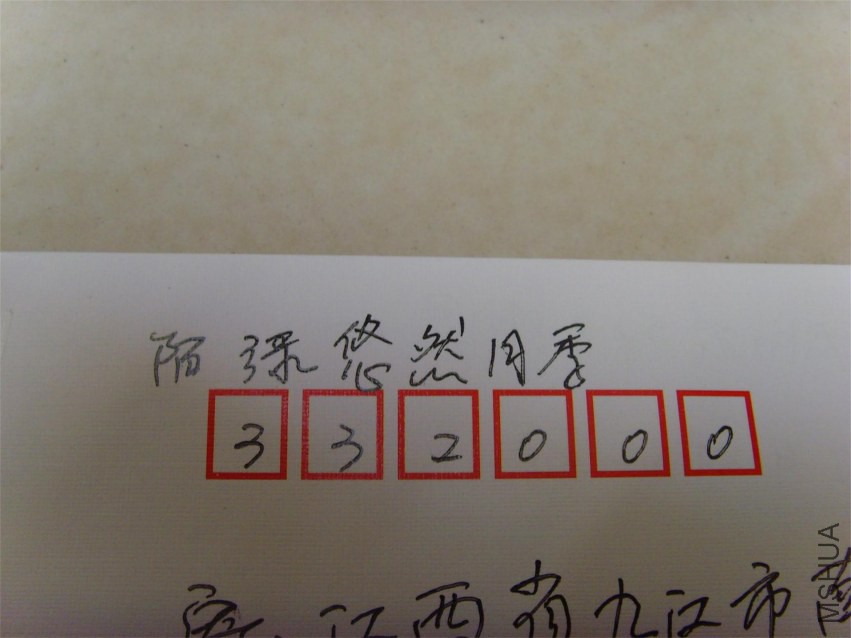 陌深悠然月季
332000
寄:江西省九江市
MSHUA